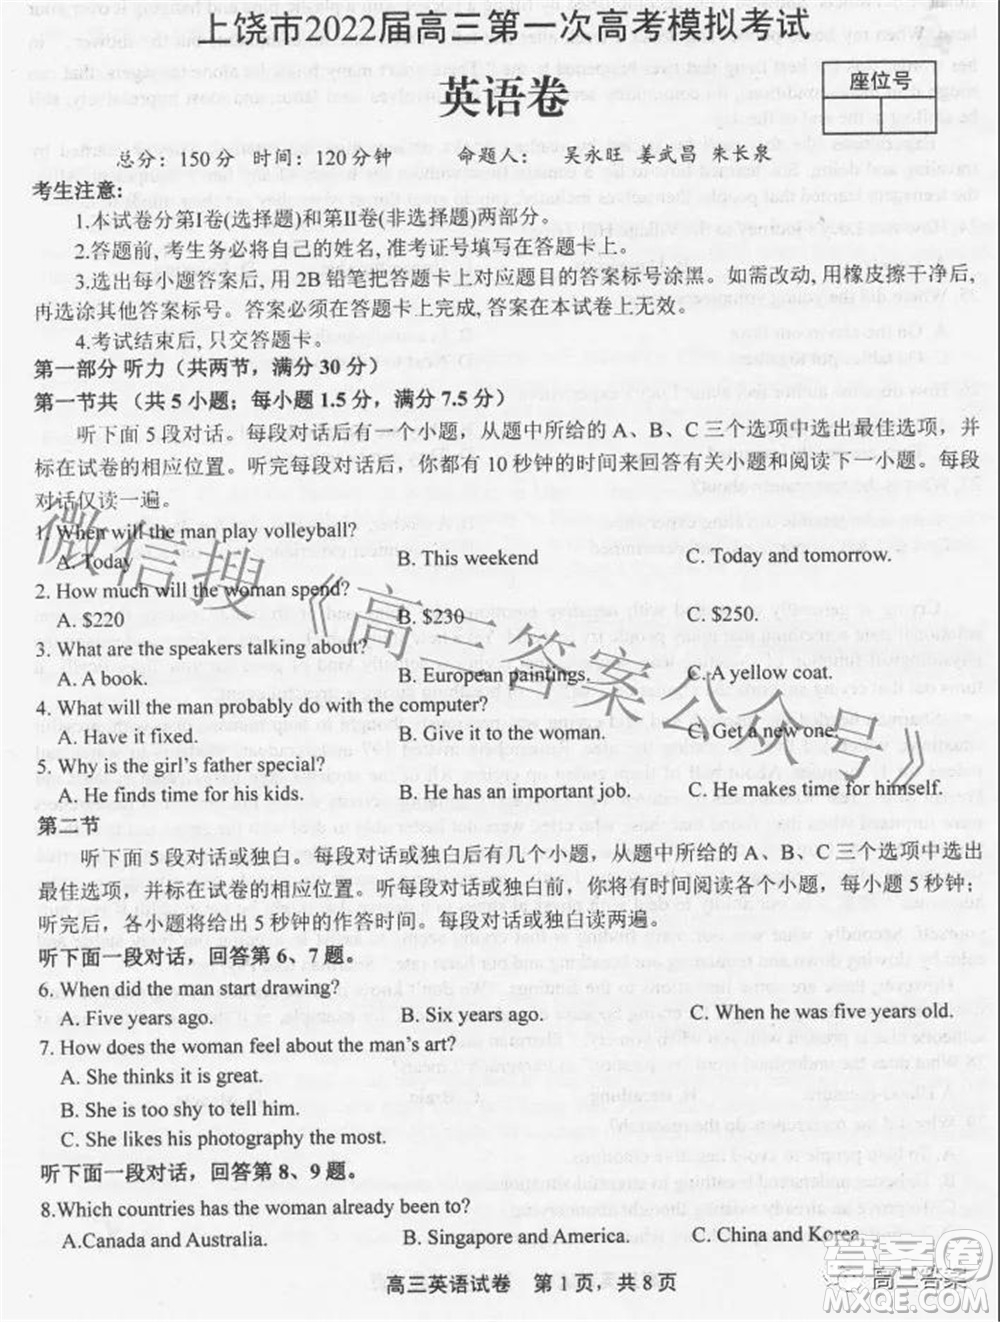 上饶市2022届高三第一次高考模拟考试
英语卷
座位号
总分：150分 时间：120分钟 命题人： 吴永旺 姜武昌 朱长泉
考生注意:
1.本试卷分第Ⅰ卷(选择题)和第Ⅱ卷(非选择题)两部分。
2.答题前,考生务必将自己的姓名,准考证号填写在答题卡上。
3.选出每小题答案后,用 2B 铅笔把答题卡上对应题目的答案标号涂黑。如需改动,用橡皮擦干净后,
再选涂其他答案标号。答案必须在答题卡上完成,答案在本试卷上无效。
4.考试结束后,只交答题卡。
第一部分 听力（共两节，满分 30 分）
第一节共 （共 5 小题；每小题 1.5 分，满分 7.5 分）
听下面 5 段对话。每段对话后有一个小题，从题中所给的 A、B、C 三个选项中选出最佳选项,，并
标在试卷的相应位置。听完每段对话后，你都有 10 秒钟的时间来回答有关小题和阅读下一小题。每段
对话仅读一遍。
1. When will the man play volleyball?
A. Today B. This weekend C. Today and tomorrow.
2. How much will the woman spend?
A. $220 B. $230 C. $250.
3. What are the speakers talking about?
A. A book. B. European paintings. C. A yellow coat.
4. What will the man probably do with the computer?
A. Have it fixed. B. Give it to the woman. C. Get a new one.
5. Why is the girl's father special?
A. He finds time for his kids. B. He has an important job. C. He makes time for himself.
第二节
听下面 5 段对话或独白。每段对话或独白后有几个小题，从题中所给的 A、B、C 三个选项中选出
最佳选项，并标在试卷的相应位置。听每段对话或独白前，你将有时间阅读各个小题，每小题 5 秒钟；
听完后，各小题将给出 5 秒钟的作答时间。每段对话或独白读两遍。
听下面一段对话，回答第 6、7 题。
6. When did the man start drawing?
A. Five years ago. B. Six years ago. C. When he was five years old.
7. How does the woman feel about the man's art?
A. She thinks it is great.
B. She is too shy to tell him.
C. She likes his photography the most.
听下面一段对话，回答第 8、9 题。
8.Which countries has the woman already been to?
A.Canada and Australia. B. Singapore and America. C. China and Korea.
高三英语试卷 第 1 页，共 8 页
微信搜《高三答案公众号》
答案圈
高三答案